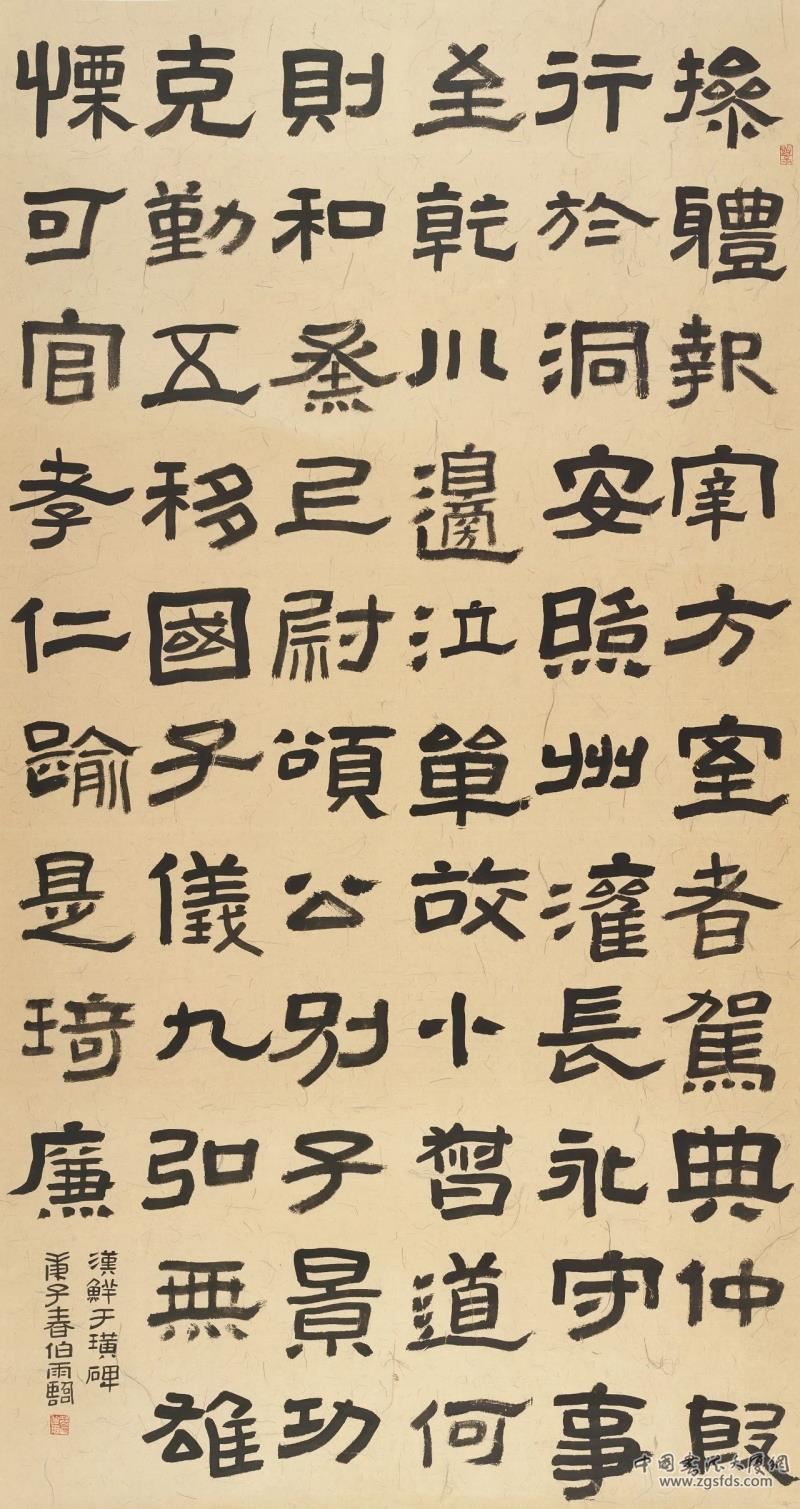 操體報宰方室者駕典仲
行於洞安照州灌長永守事
至乾川邊泣單故小道何
則和烝已尉頌公別子景功
克勤五移國子儀九弘無雄
慄可官孝仁踰是琦廉
漢鮮于璜碑
庚子春伯雨
中國書法大廈網
www.zgsfds.com